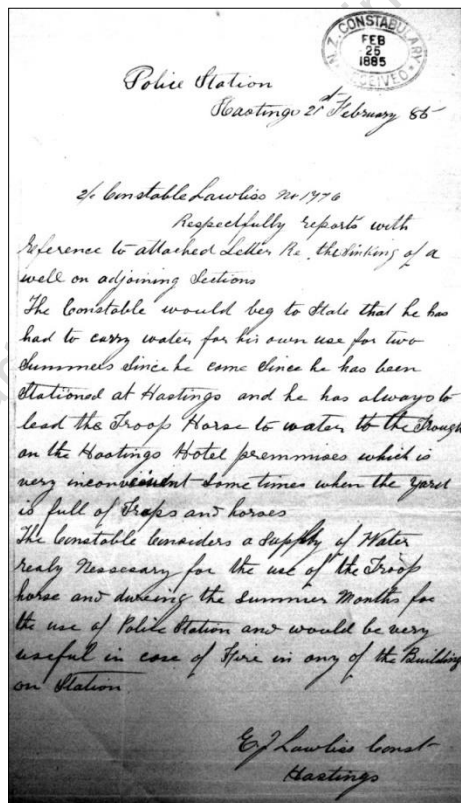 N.Z. CONSTABULARY
FEB
25
1885
RECEIVED
Police Station
Hastings 21st February 85
2/c Constable Lawliss No 1776
Respectfully reports with
reference to attached Letter Re. the Sinking of a
well on adjoining Sections
The Constable would beg to State that he has
had to carry water for his own use for two
Summers Since he came Since he has been
Stationed at Hastings and he has always to
lead the Troop Horse to water to the Trough
on the Hastings Hotel premmises which is
very inconvenient Some times when the yard
is full of Traps and horses
The Constable Considers a Supply of Water
realy Nessesary for the use of the Troop
horse and dureing the Summer Months for
the use of Police Station and would be very
useful in case of Fire in any of the Building
on Station
E J Lawliss Const
Hastings